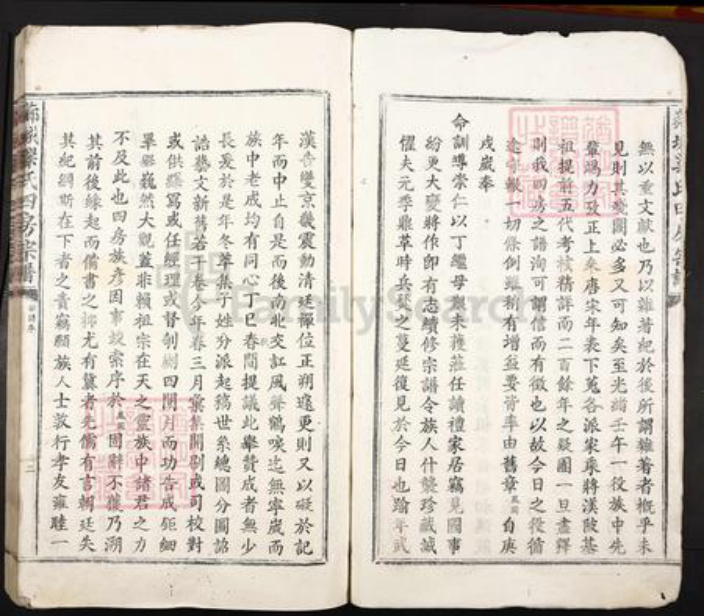 無以重文獻也乃以雜著紀於後所謂雜著者槪乎未
見則其幾圖必多又可知矣至光緒壬午一役族中先
輩竭力攷正上乘唐宋年表下蒐各派家乘將漢陂基
祖提前五代考核精詳而二百餘年之疑團一旦盡釋
則我四房之譜洵可謂信而有徵也以故今日之役循
途守轍一切條例雖稍有增益要皆率由舊章 自庚
戌歲奉
命訓導崇仁以丁繼母艱未獲蒞任讀禮家居竊見國事
紛更大變將作卽有志續修宗譜令族人什襲珍藏誠
懼夫元季鼎革時兵燹之蔓延復見於今日也踰年武
漢告變京畿震動清廷禪位正朔遽更則又以礙於記
年而中止自是而後南北交訌風聲鶴唳迄無寧歲而
族中老成均有同心丁巳春間提議此舉贊成者無少
長爰於是年冬萃集子姓分派起稿世系總圖分圖誥
誥藝文新舊若干卷今年春三月彙集開劂或司校對
或供繕寫或任經理或督剞劂四閱月而功告成鉅細
畢賅巍然大觀蓋非賴祖宗在天之靈族中諸君之力
不及此也四房族彥因事竣索序於 固辭不獲乃溯
其前後緣起而備書之抑尤有冀者先儒有言朝廷失
其紀綱斯在下者之責竊願族人士敦行孝友雍睦一
四房宗譜
FamilySearch